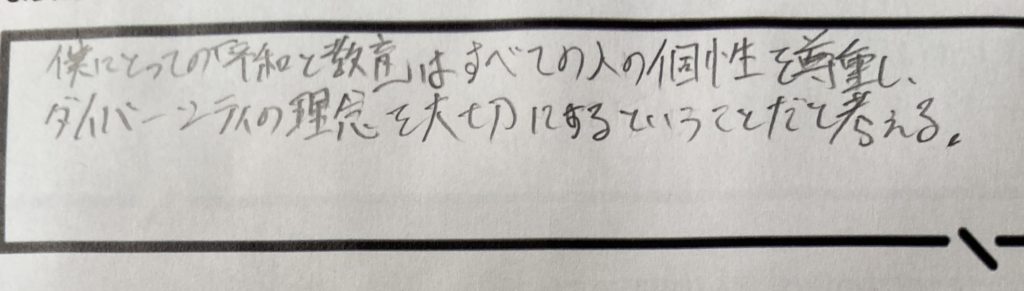 僕にとっての「平和と教育」はすべての人の個性を尊重し、
ダイバーシティの理念を大切にするということだと考える。